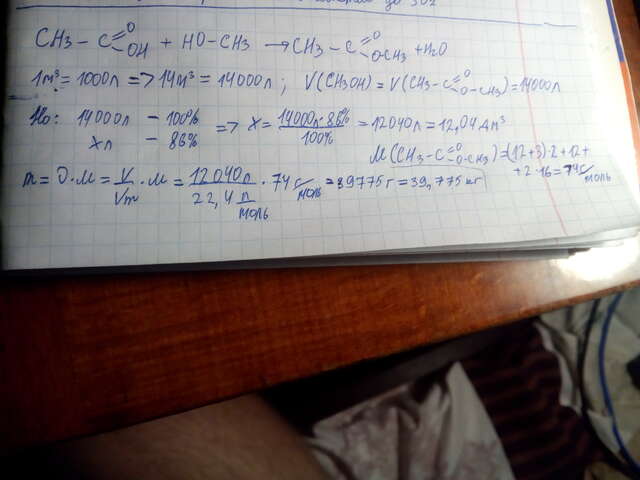 до SO2
CH3 – C =O OH + HO – CH3 → CH3 – C =O O-CH3 + H2O
1м³ = 1000л => 14м³ = 14000л ; V(CH3OH) = V(CH3 – C =O O – CH3) = 14000л
Но: 14000л – 100% => x = 14000л · 86% / 100% = 12040л = 12,04 дм³
xл – 86%
M(CH3 – C =O O-CH3) = (12+3)·2+12+
+2·16 = 74 г/моль
m = ϑ·M = V/Vm · M = 12040л / 22,4 л/моль · 74 г/моль = 39775г = 39,775 кг